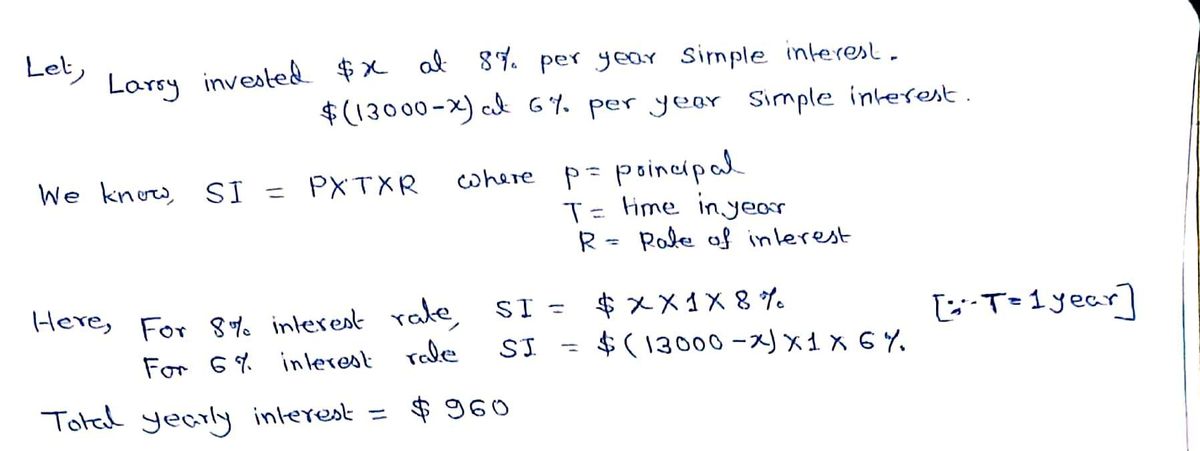 Let, Larry invested $x at 8% per year simple interest.
$(13000-x) at 6% per year simple interest.
We know, SI = P×T×R where p = poincipal
T = time in year
R = Rate of interest
Here, For 8% interest rate, SI = $ x × 1 × 8 % [∵ T = 1 year]
For 6% interest rate SI = $ (13000-x) × 1 × 6 %.
Total yearly interest = $ 960